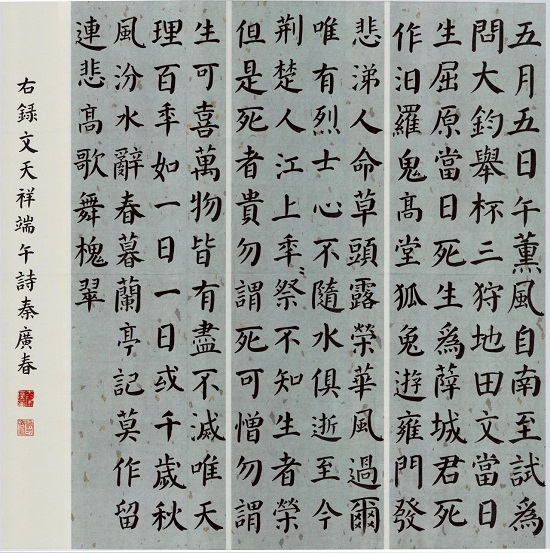 五月五日午薰風自南至試爲
問大鈞舉杯三狩地田文當日
生屈原當日死生爲薛城君死
作汨羅鬼髙堂狐兔遊雍門發
悲涕人命草頭露榮華風過爾
唯有烈士心不隨水俱逝至今
荆楚人江上秊〻祭不知生者榮
但是死者貴勿謂死可憎勿謂
生可喜萬物皆有盡不滅唯天
理百秊如一日一日或千歲秋
風汾水辭春暮蘭亭記莫作留
連悲髙歌舞槐翠
右録文天祥端午詩秦廣春